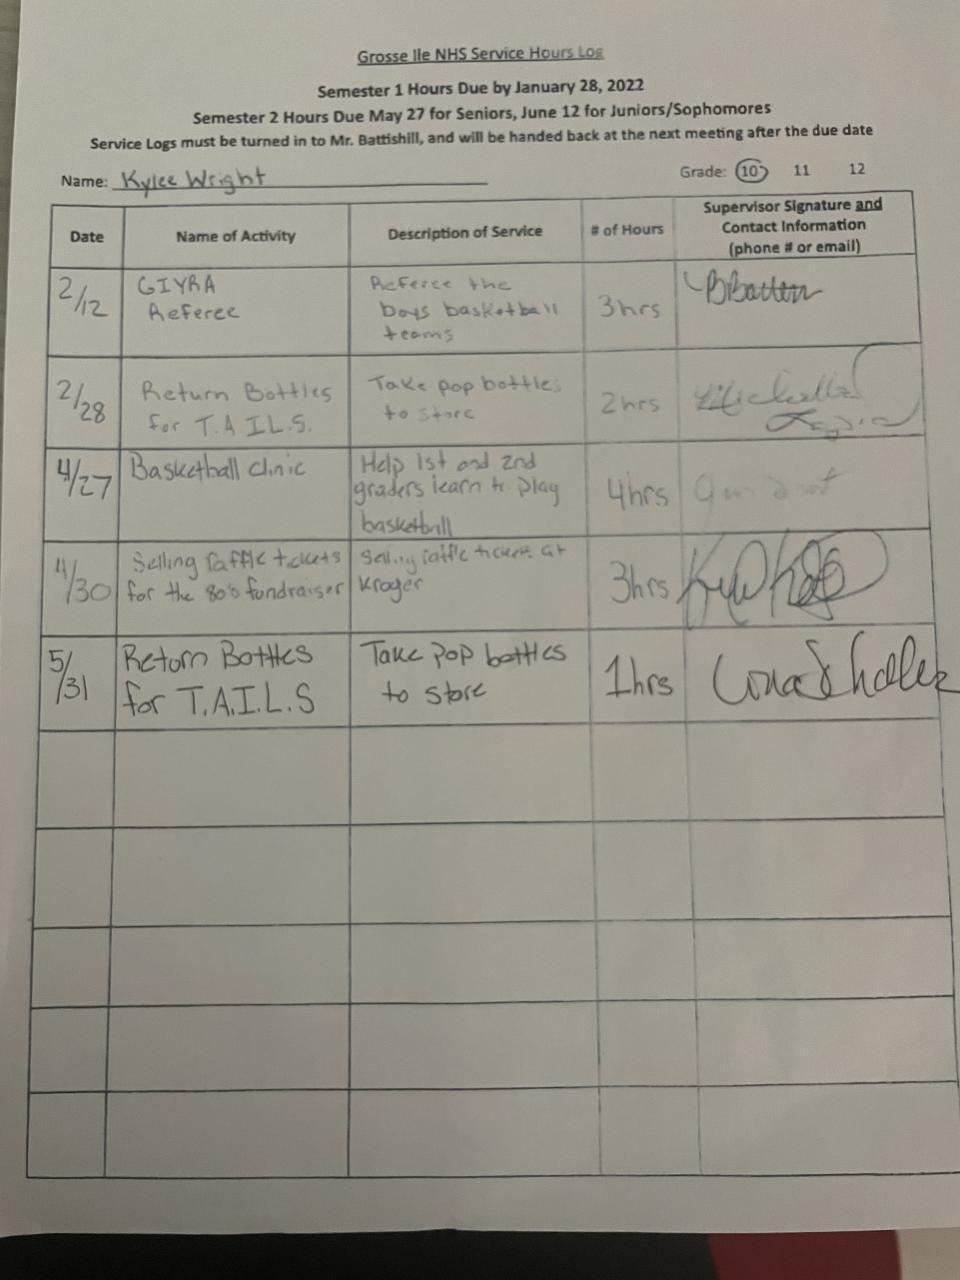 Grosse Ile NHS Service Hours Log
Semester 1 Hours Due by January 28, 2022
Semester 2 Hours Due May 27 for Seniors, June 12 for Juniors/Sophomores
Service Logs must be turned in to Mr. Battishill, and will be handed back at the next meeting after the due date
Name: Kylee Wright
Grade: 10 11 12
Date
Name of Activity
Description of Service
# of Hours
Supervisor Signature and
Contact Information
(phone # or email)
2/12
GIYRA
Referee
Referee the
boys basketball
teams
3hrs
2/28
Return Bottles
for T.A.I.L.S.
Take pop bottles
to store
2hrs
Michelle
4/27
Basketball clinic
Help 1st and 2nd
graders learn to play
basketball
4hrs
4/30
Selling raffle tickets
for the 80's fundraiser
Selling raffle tickets at
Kroger
3hrs
5/31
Return Bottles
for T.A.I.L.S
Take pop bottles
to store
1hrs